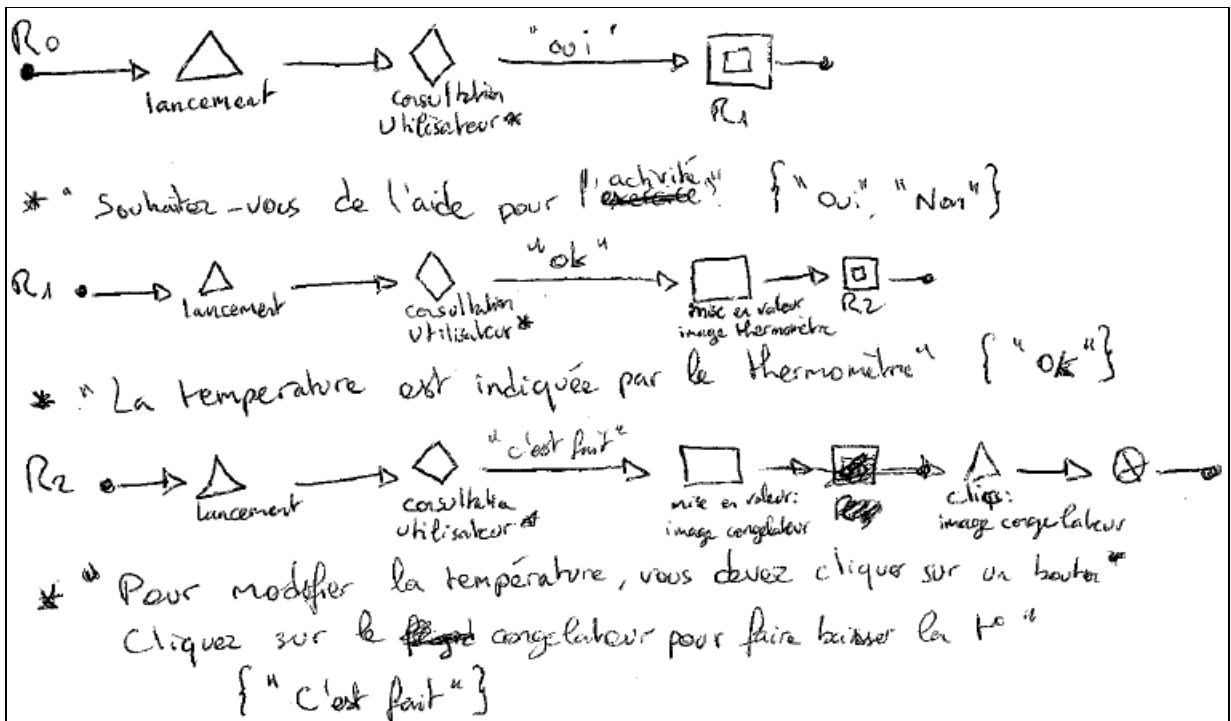 R0
"oui"
lancement
consultation
utilisateur*
R1
* "Souhaitez-vous de l'aide pour l'activité" {"Oui", "Non"}
R1
"ok"
lancement
consultation
utilisateur*
mise en valeur
image thermomètre
R2
* "La temperature est indiquée par le thermomètre" {"Ok"}
R2
"c'est fait"
lancement
consultation
utilisateur*
mise en valeur:
image congelateur
clics:
image congelateur
* "Pour modifier la température, vous devez cliquer sur un bouton"
Cliquez sur le congelateur pour faire baisser la t°"
{"C'est fait"}